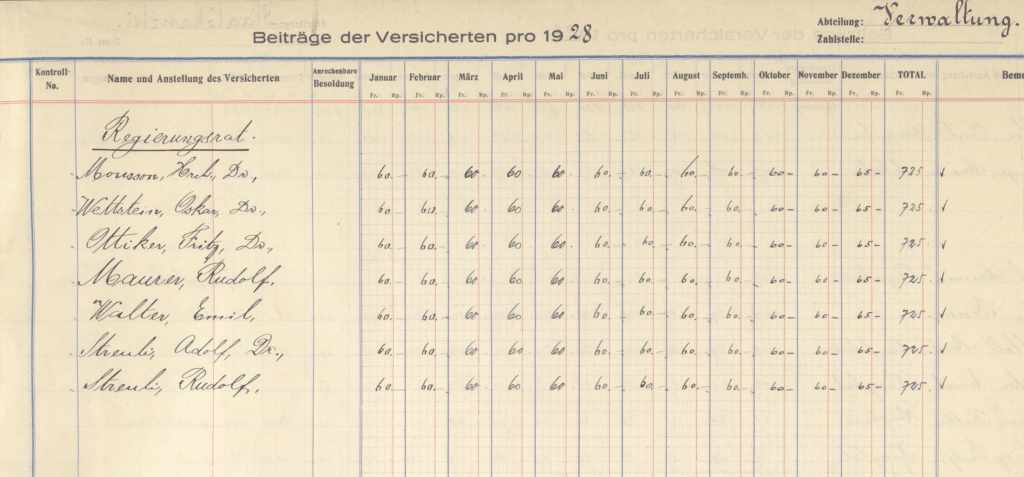 Abteilung: Verwaltung.
Beiträge der Versicherten pro 1928
Zahlstelle:
Kontroll-No. Name und Anstellung des Versicherten Anrechenbare Besoldung Januar Februar März April Mai Juni Juli August Septemb. Oktober November Dezember TOTAL
Fr. Rp. Fr. Rp. Fr. Rp. Fr. Rp. Fr. Rp. Fr. Rp. Fr. Rp. Fr. Rp. Fr. Rp. Fr. Rp. Fr. Rp. Fr. Rp. Fr. Rp.
Regierungsrat.
Mousson, Hch., Dr., 60.– 60.– 60.– 60 60 60.– 60.– 60.– 60.– 60– 60– 65– 725 √
Wettstein, Oskar, Dr., 60.– 60.– 60.– 60 60 60.– 60.– 60.– 60.– 60– 60– 65– 725. √
Ottiker, Fritz, Dr., 60.– 60.– 60 60 60 60.– 60.– 60.– 60.– 60– 60– 65– 725. √
Maurer, Rudolf. 60.– 60.– 60 60 60. 60.– 60.– 60.– 60.– 60– 60– 65– 725. √
Walter, Emil, 60.– 60.– 60 60 60. 60.– 60.– 60.– 60.– 60– 60– 65– 725. √
Streuli, Adolf, Dr., 60.– 60.– 60 60 60. 60.– 60.– 60.– 60.– 60– 60– 65– 725. √
Streuli, Rudolf. 60.– 60.– 60 60 60. 60.– 60.– 60.– 60.– 60– 60– 65– 725. √